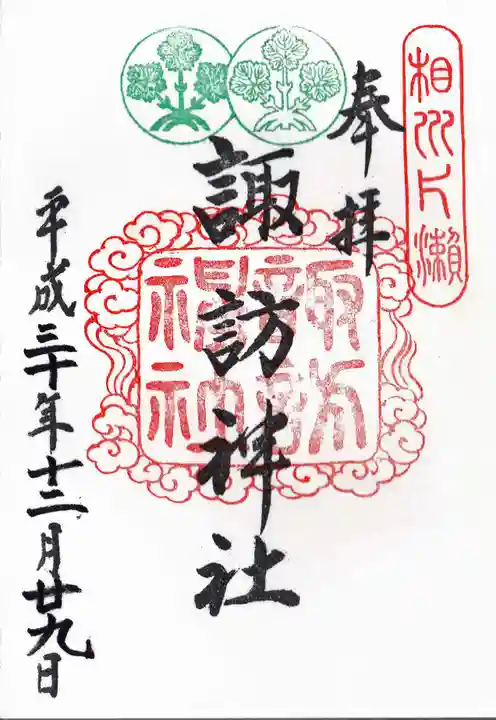 相州片瀬
奉拝
諏訪神社
平成三十年十二月廿九日